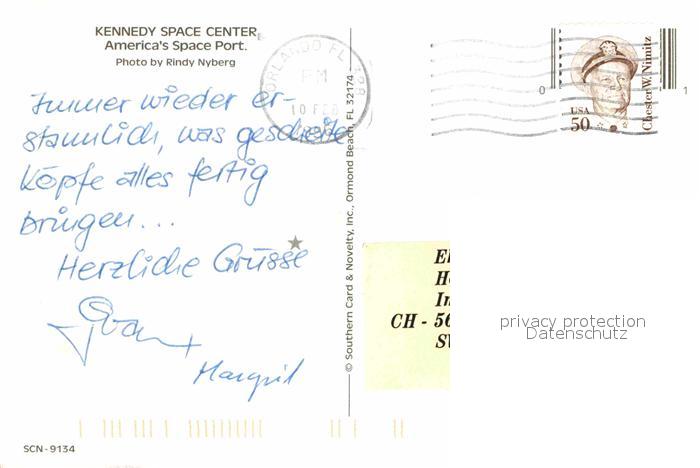 KENNEDY SPACE CENTER,
America's Space Port.
Photo by Rindy Nyberg
Immer wieder er-
staunlich, was gescheite
Köpfe alles fertig
bringen...
Herzliche Grüsse
Margrit
SCN-9134
© Southern Card & Novelty, Inc., Ormond Beach, FL 32174
ORLANDO FL
PM
10 FEB
0
1
USA
50
Chester W. Nimitz
CH - 56
privacy protection
Datenschutz